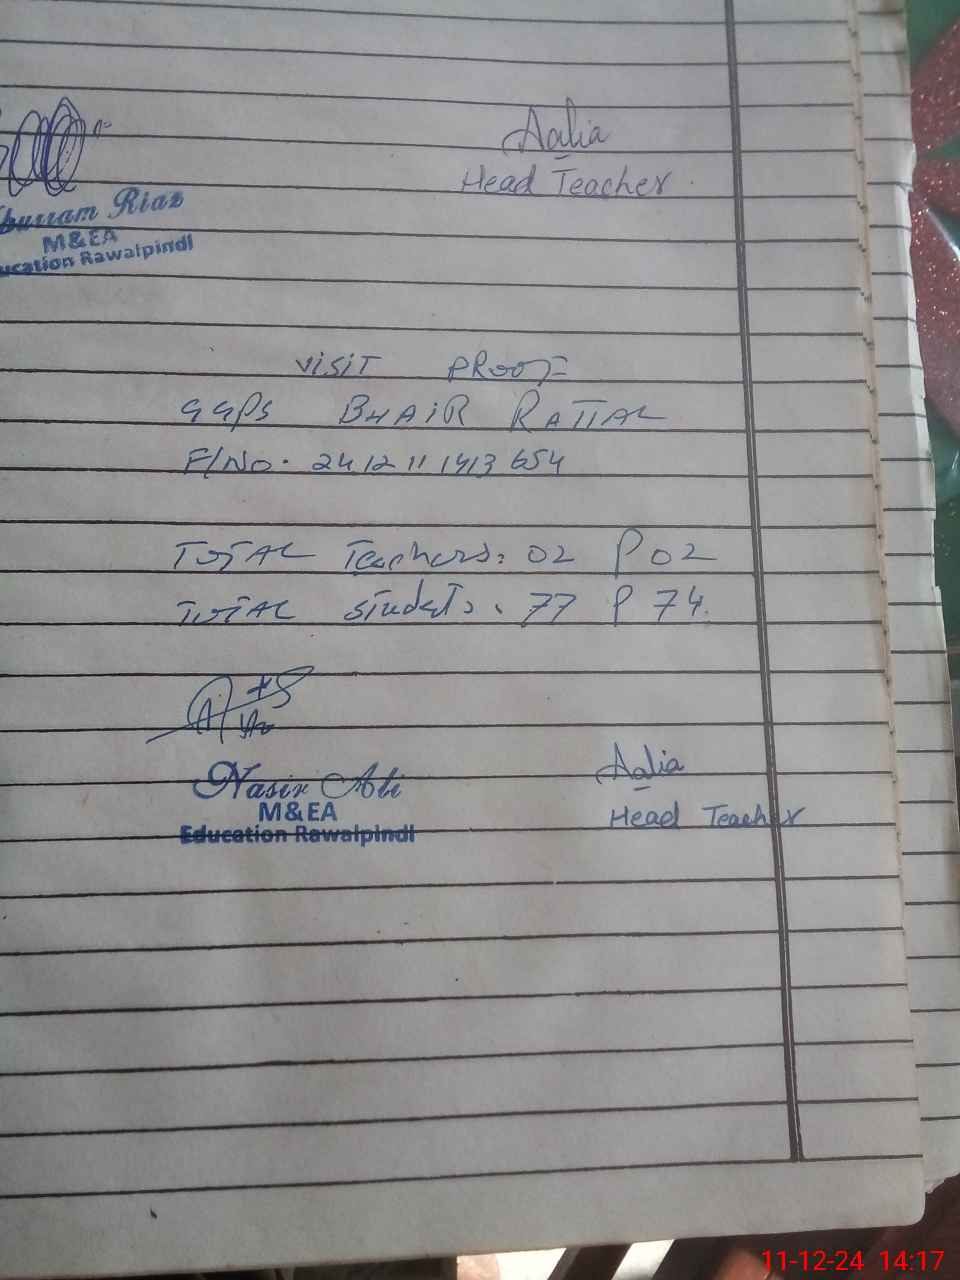 Aalia
Head Teacher
Riaz
M&EA
Education Rawalpindi
VISIT PROOF
GGPS BHAIR RATTAL
F/No. 24 12 11 1413 654
TOTAL Teachers: 02 P 02
TOTAL students. 77 P 74.
Nasir Ali
M&EA
Education Rawalpindi
Aalia
Head Teacher
11-12-24 14:17